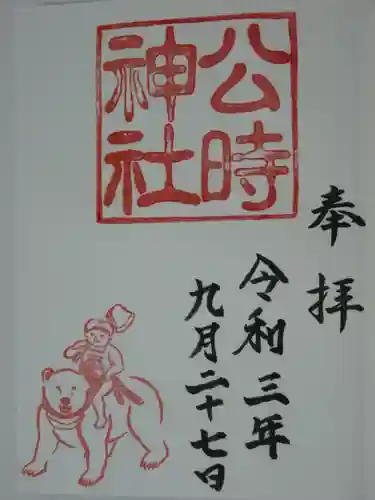 奉拝
公時
神社
令和三年
九月二十七日